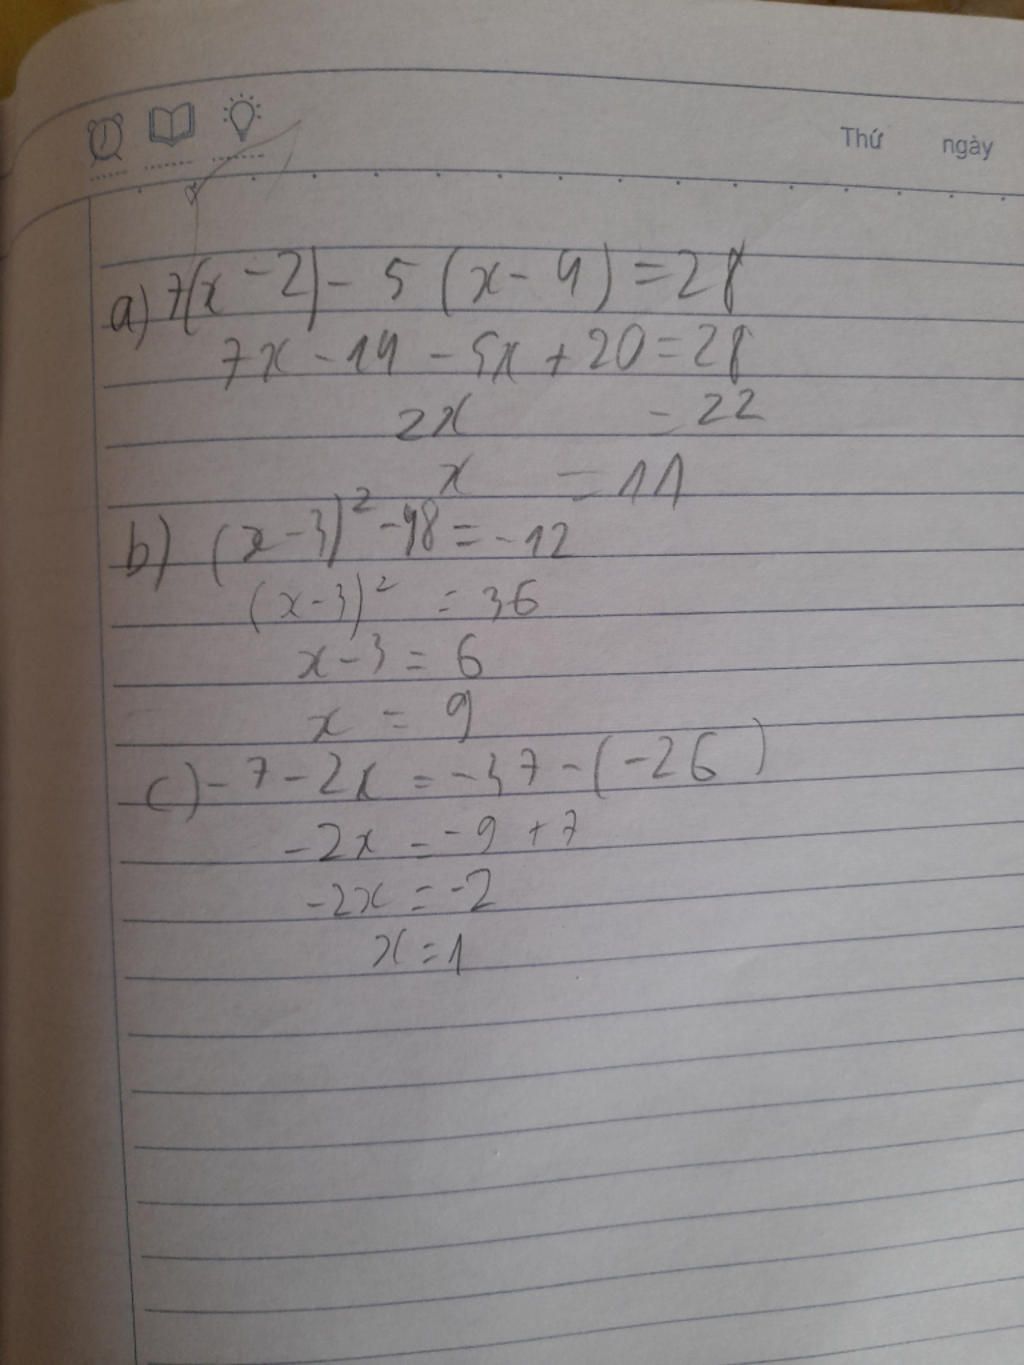 Thứ ngày
a) 7(x-2) - 5(x-4) = 28
7x - 14 - 5x + 20 = 28
2x = 22
x = 11
b) (x-3)² - 48 = -12
(x-3)² = 36
x-3 = 6
x = 9
c) -7 - 2x = -37 - (-26)
-2x = -9 + 7
-2x = -2
x = 1